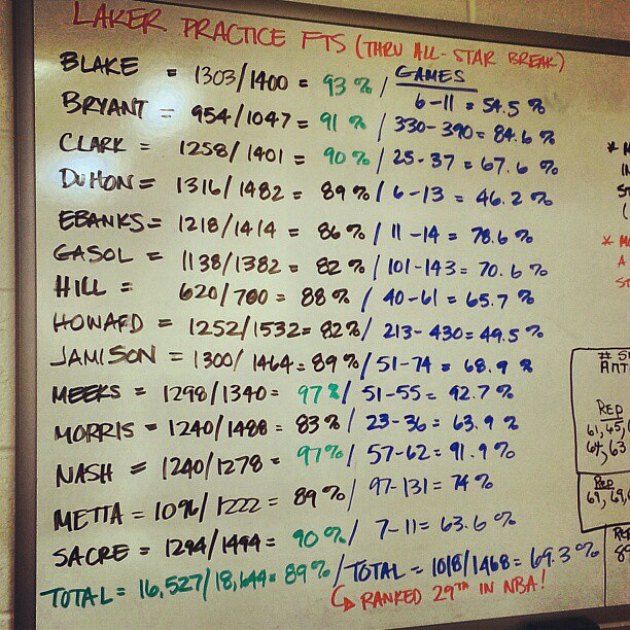 LAKER PRACTICE FTS (THRU ALL-STAR BREAK)
GAMES
BLAKE = 1303/1400 = 93% / 6-11 = 54.5%
BRYANT = 954/1047 = 91% / 330-390 = 84.6%
CLARK = 1258/1401 = 90% / 25-37 = 67.6%
DUHON = 1316/1482 = 89% / 6-13 = 46.2%
EBANKS = 1218/1414 = 86% / 11-14 = 78.6%
GASOL = 1138/1382 = 82% / 101-143 = 70.6%
HILL = 620/700 = 88% / 40-61 = 65.7%
HOWARD = 1252/1532 = 82% / 213-430 = 49.5%
JAMISON = 1300/1464 = 89% / 51-74 = 68.9%
MEEKS = 1298/1340 = 97% / 51-55 = 92.7%
MORRIS = 1240/1488 = 83% / 23-36 = 63.9%
NASH = 1240/1278 = 97% / 57-62 = 91.9%
METTA = 1096/1222 = 89% / 97-131 = 74%
SACRE = 1294/1444 = 90% / 7-11 = 63.6%
TOTAL = 16,527/18,644 = 89% / TOTAL = 1018/1468 = 69.3%
RANKED 29TH IN NBA!
RED
61, 65,
64, 63
RED
69, 69,